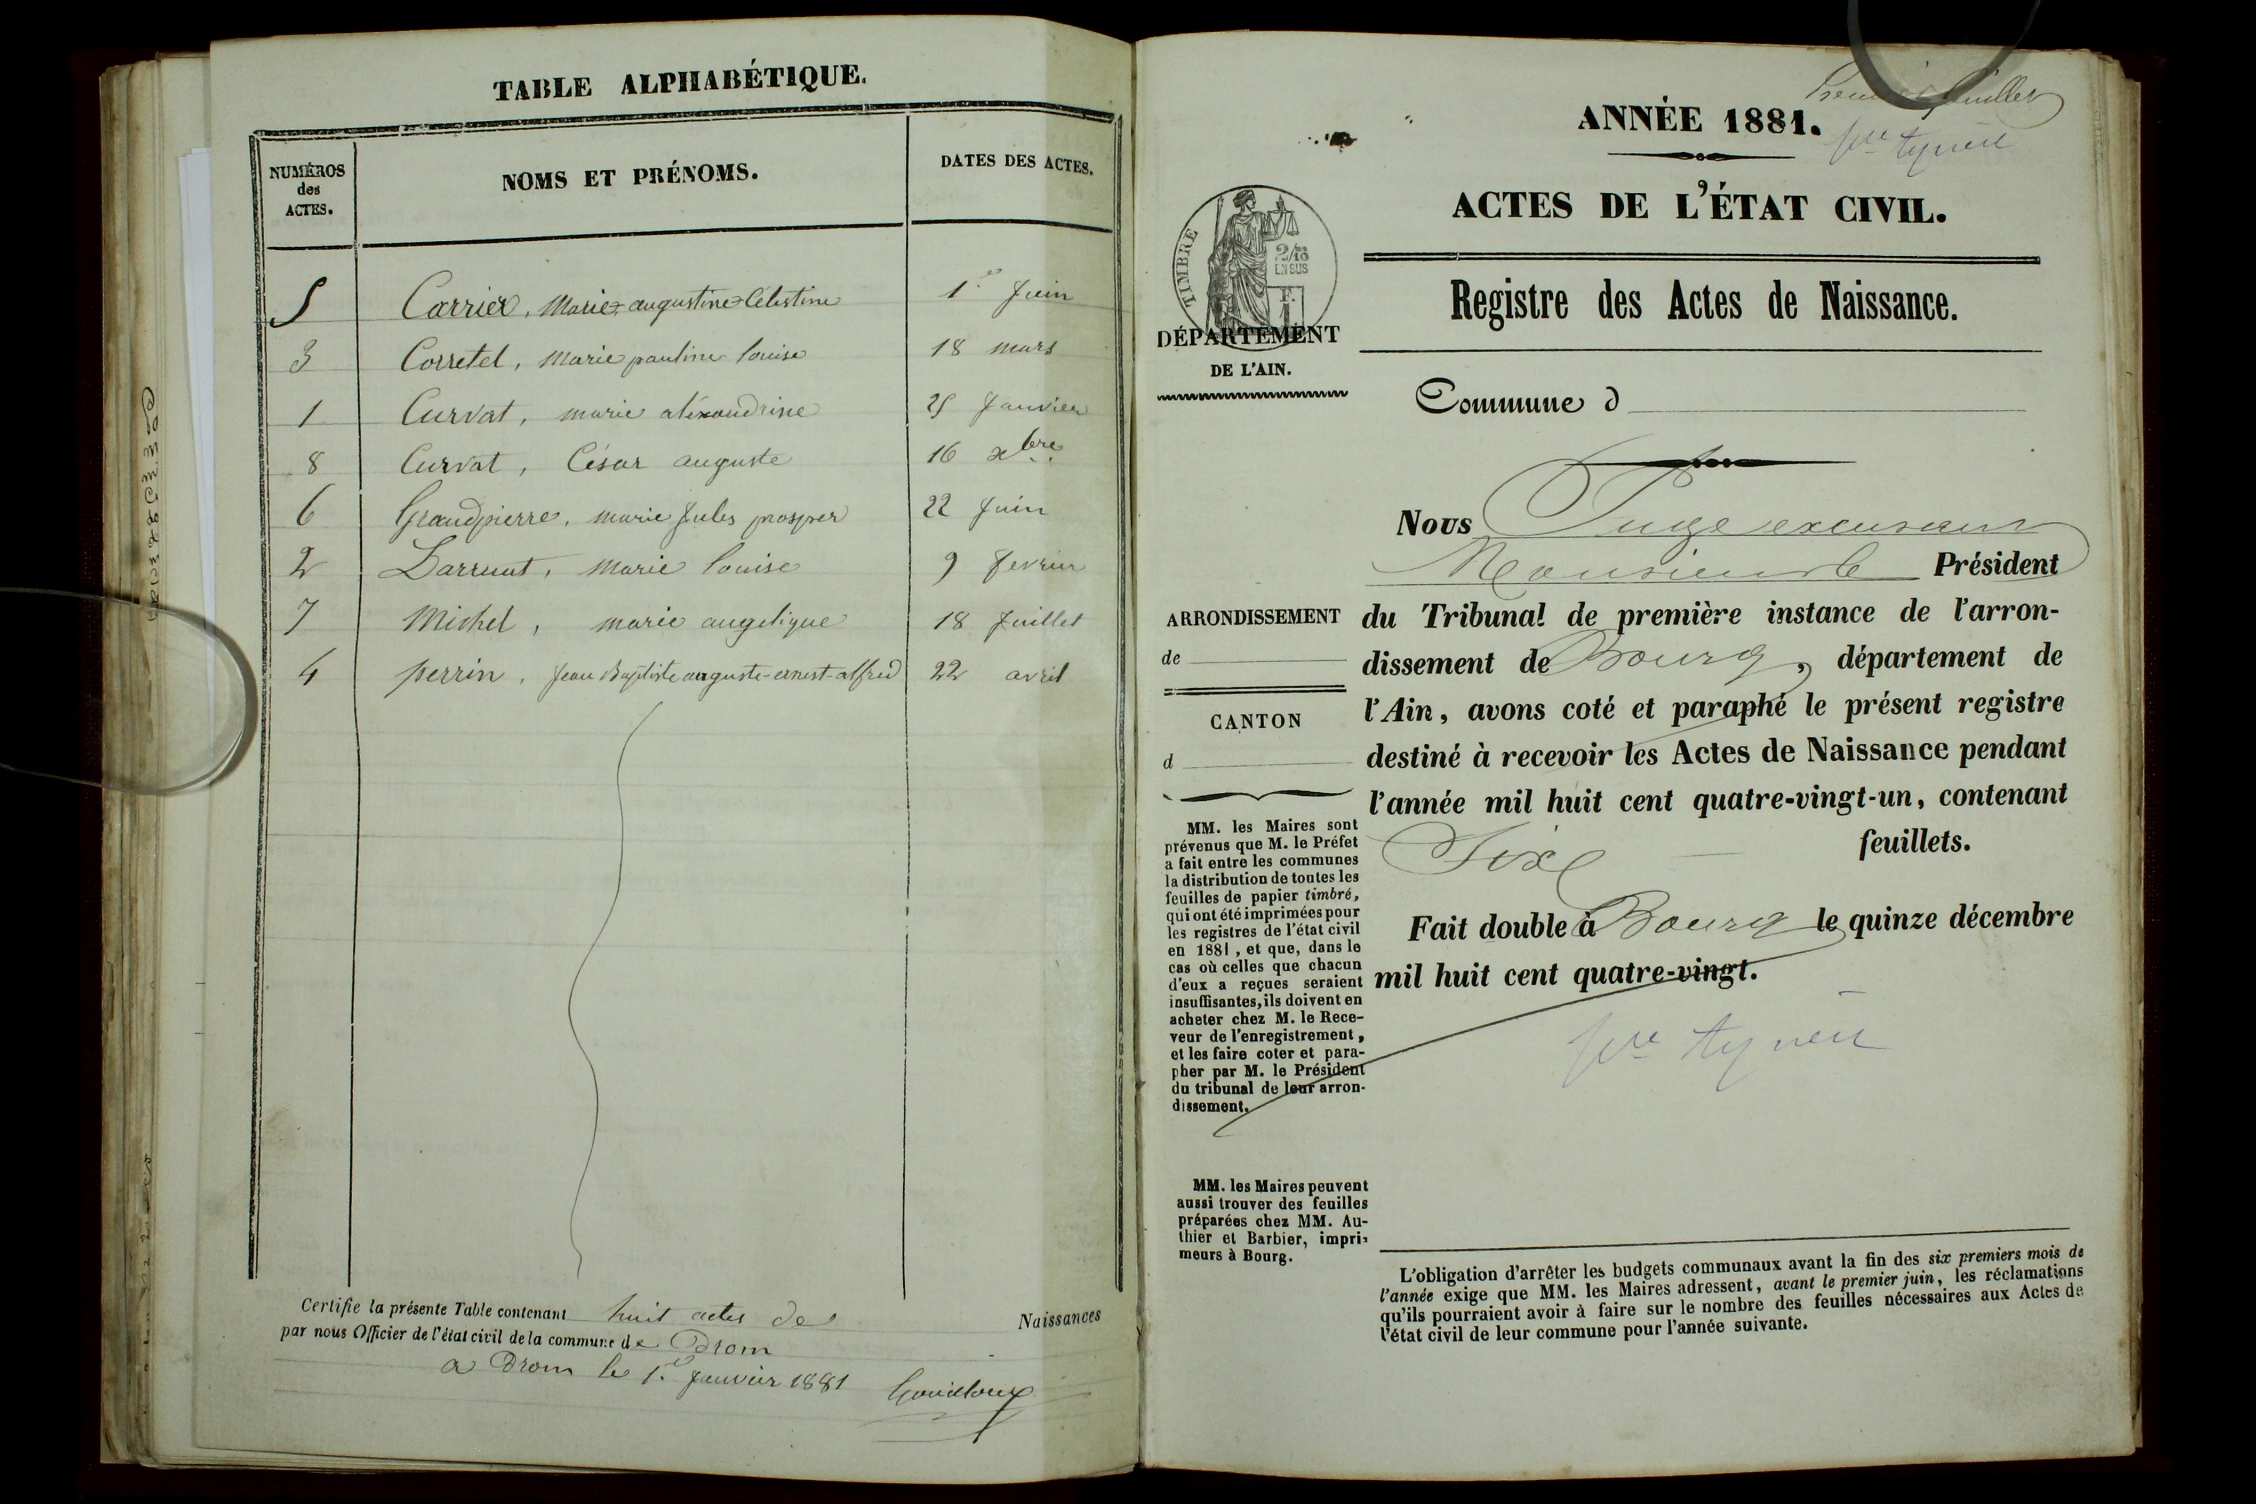 TABLE ALPHABÉTIQUE.
NUMÉROS des ACTES.
NOMS ET PRÉNOMS.
DATES DES ACTES.
5 Carrier, Marie-augustine-Célestine 1er Juin
3 Corretel, Marie pauline louise 18 mars
1 Curvat, marie aléxandrine 25 Janvier
8 Curvat, César auguste 16 xbre
6 Grandpierre, marie Jules prosper 22 Juin
2 Larruat, Marie louise 9 fevrier
7 Michel, marie angelique 18 Juillet
4 perrin, Jean Baptiste auguste-ernest-alfred 22 avril
Certifie la présente Table contenant huit actes de Naissances
par nous Officier de l'état civil de la commune de Drom
a Drom le 1er Janvier 1881
Premier feuillet
ANNÉE 1881.
ACTES DE L'ÉTAT CIVIL.
TIMBRE
2/10
EN SUS
DÉPARTEMENT
DE L'AIN.
Registre des Actes de Naissance.
Commune d
Nous Juge excusant
Monsieur le Président
du Tribunal de première instance de l'arron-
dissement de Bourg, département de
l'Ain, avons coté et paraphé le présent registre
destiné à recevoir les Actes de Naissance pendant
l'année mil huit cent quatre-vingt-un, contenant
Six feuillets.
Fait double à Bourg le quinze décembre
mil huit cent quatre-vingt.
ARRONDISSEMENT
de
CANTON
d
MM. les Maires sont
prévenus que M. le Préfet
a fait entre les communes
la distribution de toutes les
feuilles de papier timbré,
qui ont été imprimées pour
les registres de l'état civil
en 1881, et que, dans le
cas où celles que chacun
d'eux a reçues seraient
insuffisantes, ils doivent en
acheter chez M. le Rece-
veur de l'enregistrement,
et les faire coter et para-
pher par M. le Président
du tribunal de leur arron-
dissement.
MM. les Maires peuvent
aussi trouver des feuilles
préparées chez MM. Au-
thier et Barbier, impri-
meurs à Bourg.
L'obligation d'arrêter les budgets communaux avant la fin des six premiers mois de
l'année exige que MM. les Maires adressent, avant le premier juin, les réclamations
qu'ils pourraient avoir à faire sur le nombre des feuilles nécessaires aux Actes de
l'état civil de leur commune pour l'année suivante.